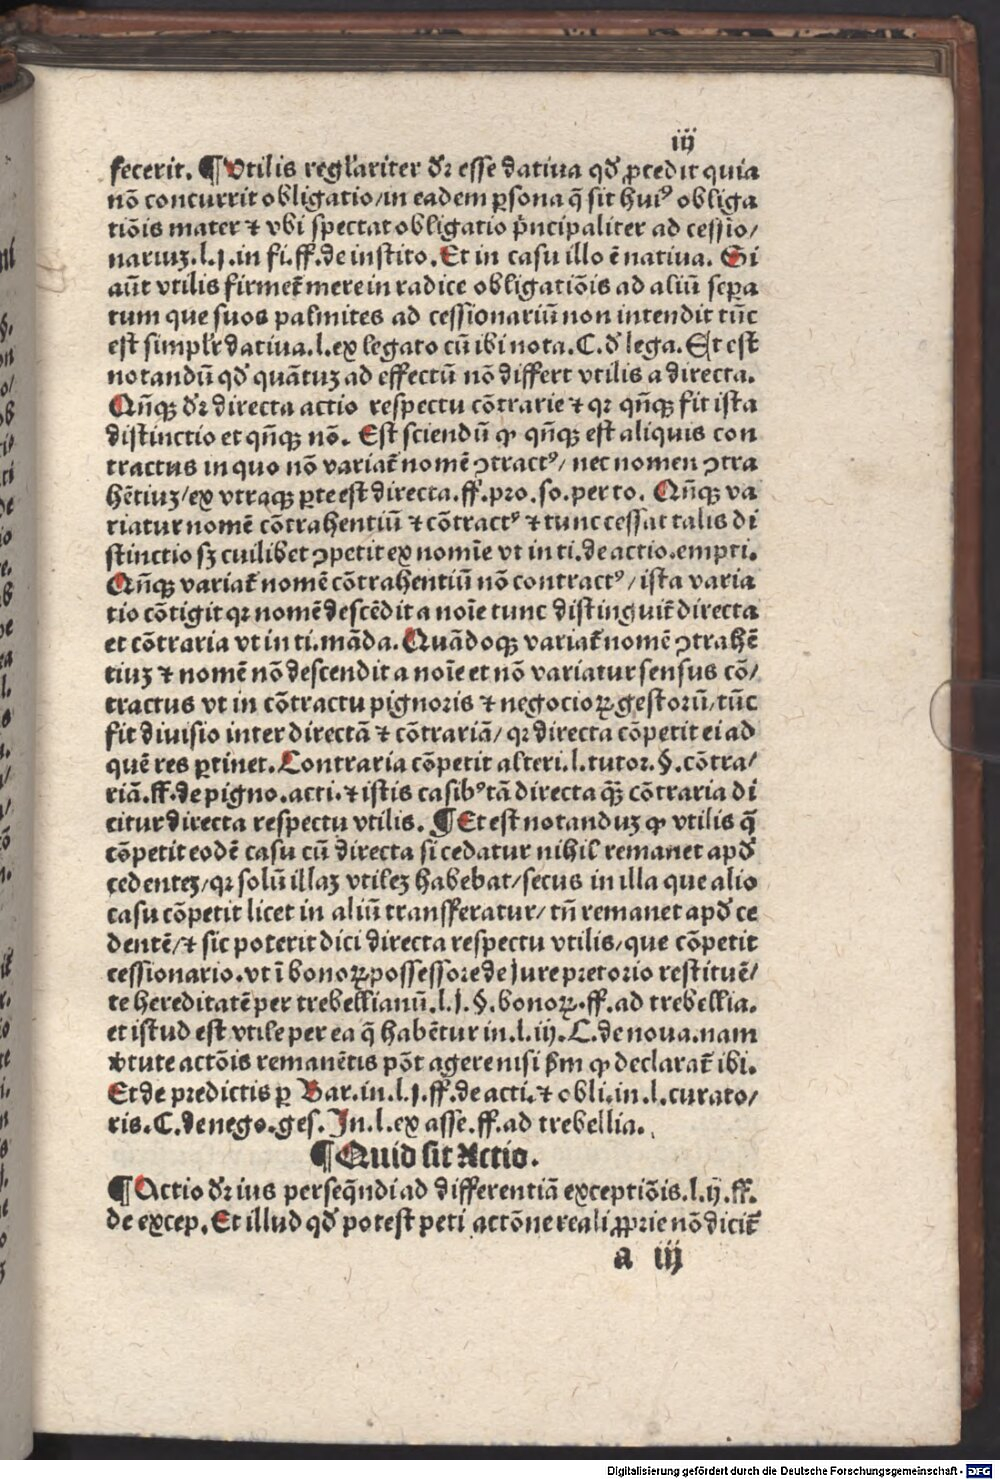 iij
fecerit. ¶ Utilis regl'ariter dr̄ esse datiua qd' ꝓcedit quia
nō concurrit obligatio/in eadem ꝑsona q̄ sit hui⁹ obliga
tiōis mater ⁊ vbi spectat obligatio p̄ncipaliter ad cessio/
nariuꝫ.l.j.in fi.ff.de instito. Et in casu illo ē natiua. Si
aūt vtilis firmet̄ mere in radice obligatiōis ad aliū sepa
tum que suos palmites ad cessionariū non intendit tūc
est simpl'r datiua.l.ex legato cū ibi nota.C.d' lega. Et est
notandū qd' quātuꝫ ad effectū nō differt vtilis a directa.
Qn̄qꝫ dr̄ directa actio respectu cōtrarie ⁊ qꝛ qn̄qꝫ fit ista
distinctio et qn̄qꝫ nō. Est sciendū ꝙ qn̄qꝫ est aliquis con
tractus in quo nō variat̄ nomē ꝯtract⁹/ nec nomen ꝯtra
hētiuꝫ/ex vtraqꝫ ꝑte est directa.ff.pro.so.per to. Qn̄qꝫ va
riatur nomē cōtrahentiū ⁊ cōtract⁹ ⁊ tunc cessat talis di
stinctio sꝫ cuilibet ꝯpetit ex nomīe vt in ti.de actio.empti.
Qn̄qꝫ variat̄ nomē cōtrahentiū nō contract⁹/ ista varia
tio cōtigit qꝛ nomē descēdit a noīe tunc distinguit̄ directa
et cōtraria vt in ti.māda. Quādoqꝫ variat̄ nomē ꝯtrahē
tiuꝫ ⁊ nomē nō descendit a noīe et nō variatur sensus cō/
tractus vt in cōtractu pignoris ⁊ negocioꝝ gestorū/tūc
fit diuisio inter directā ⁊ cōtrariā/ qꝛ directa cōpetit ei ad
quē res ꝑtinet. Contraria cōpetit alteri.l.tutor.§.cōtra/
riā.ff.de pigno.acti.⁊ istis casib⁹ tā directa qꝫ̄ cōtraria di
citur directa respectu vtilis. ¶ Et est notanduꝫ ꝙ vtilis q̄
cōpetit eodē casu cū directa si cedatur nihil remanet apd'
cedenteꝫ/qꝛ solū illaꝫ vtileꝫ habebat/secus in illa que alio
casu cōpetit licet in aliū transferatur/ tn̄ remanet apd' ce
dentē/⁊ sic poterit dici directa respectu vtilis/que cōpetit
cessionario.vt ī bonoꝝ possessore de jure pretorio restituē/
te hereditatē per trebellianū.l.j.§.bonoꝝ.ff.ad trebellia.
et istud est vtile per ea q̄ habētur in.l.iij.C.de noua.nam
v̓tute actōis remanētis pōt agere nisi ẜm ꝙ declarat̄ ibi.
Et de predictis ꝑ Bar.in.l.j.ff.de acti.⁊ obli.in.l.curato/
ris.C.de nego.ges. In.l.ex asse.ff.ad trebellia.
¶ Quid sit Actio.
¶ Actio dr̄ ius perseq̄ndi ad differentiā exceptiōis.l.ij.ff.
de excep. Et illud qd' potest peti actōne reali ꝓprie nō dicit̄
a iij
Digitalisierung gefördert durch die Deutsche Forschungsgemeinschaft - DFG